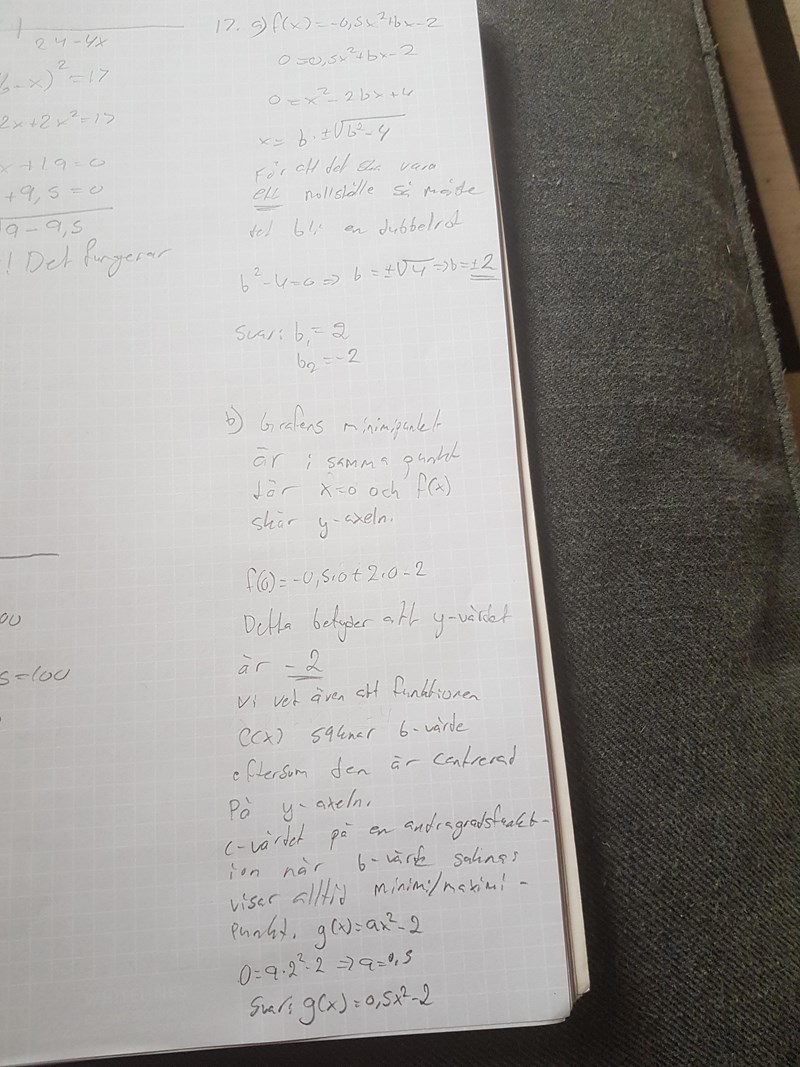 24-4x
-x)²=17
2x+2x²=17
x+19=0
+9,5=0
9-9,5
! Det fungerar
00
s=100
17. a) f(x)=-0,5x²+bx-2
0=0,5x²+bx-2
0=x²-2bx+4
x= b·±√b²-4
För att det ska vara
ett nollställe så måste
det bli en dubbelrot
b²-4=0⇒ b=±√4⇒b=±2
Svar: b₁=2
b₂=-2
b) Grafens minimipunkt
är i samma punkt
där x=0 och f(x)
skär y-axeln.
f(0)=-0,5·0+2·0-2
Detta betyder att y-värdet
är -2
Vi vet även att funktionen
saknar b-värde
eftersom den är centrerad
På y-axeln.
c-värdet på en andragradsfunkt-
ion när b-värde saknas
visar alltid minimi/maximi-
punkt. g(x)=ax²-2
0=a·2²-2 ⇒a=0,5
Svar: g(x)=0,5x²-2